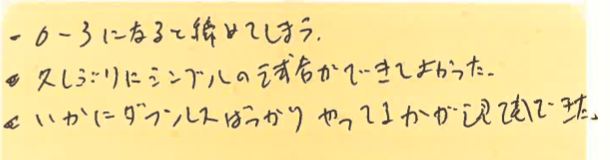 - 0-3になると諦めてしまう.
• 久しぶりにシングルの試合ができてよかった.
• いかにダブルスばっかりやってるかが認識できた.